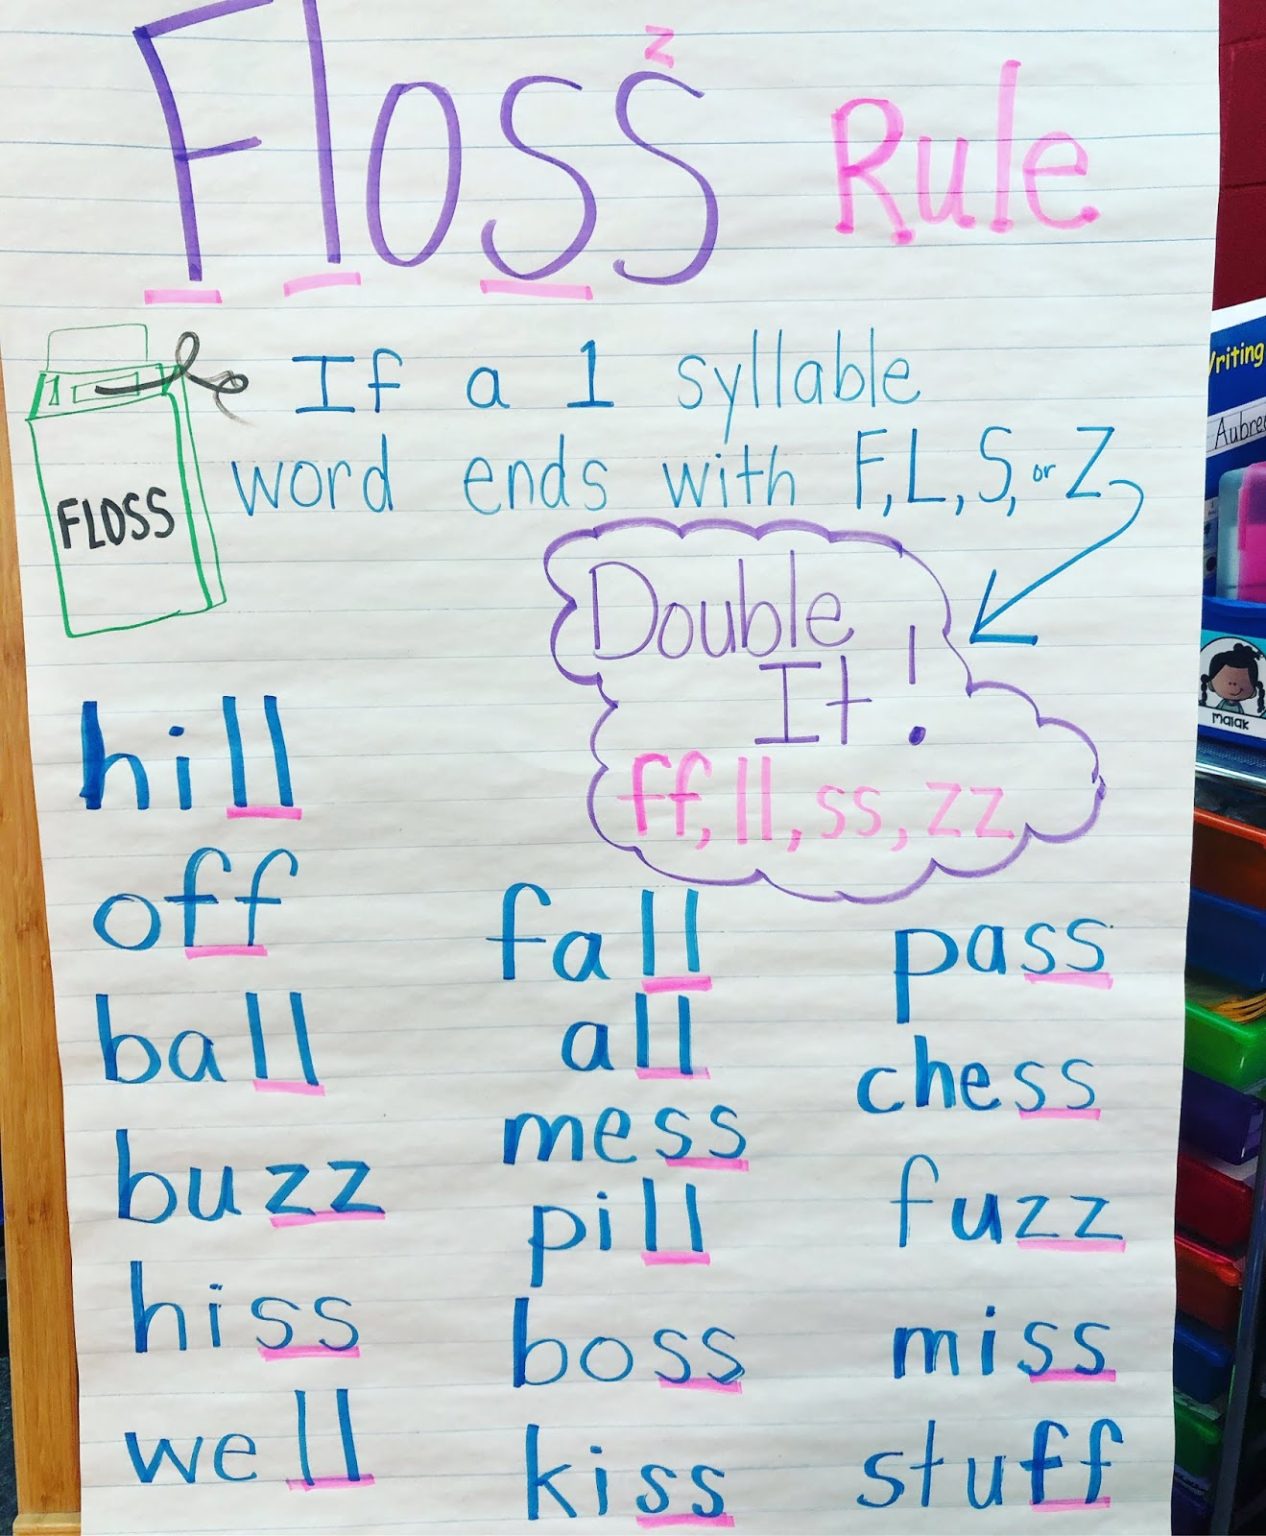 Floss Rule
z
FLOSS
If a 1 syllable
word ends with F, L, S, or Z
Double
It!
ff, ll, ss, zz
hill
off
ball
buzz
hiss
well
fall
all
mess
pill
boss
kiss
pass
chess
fuzz
miss
stuff
Writing
Aubre
Malak